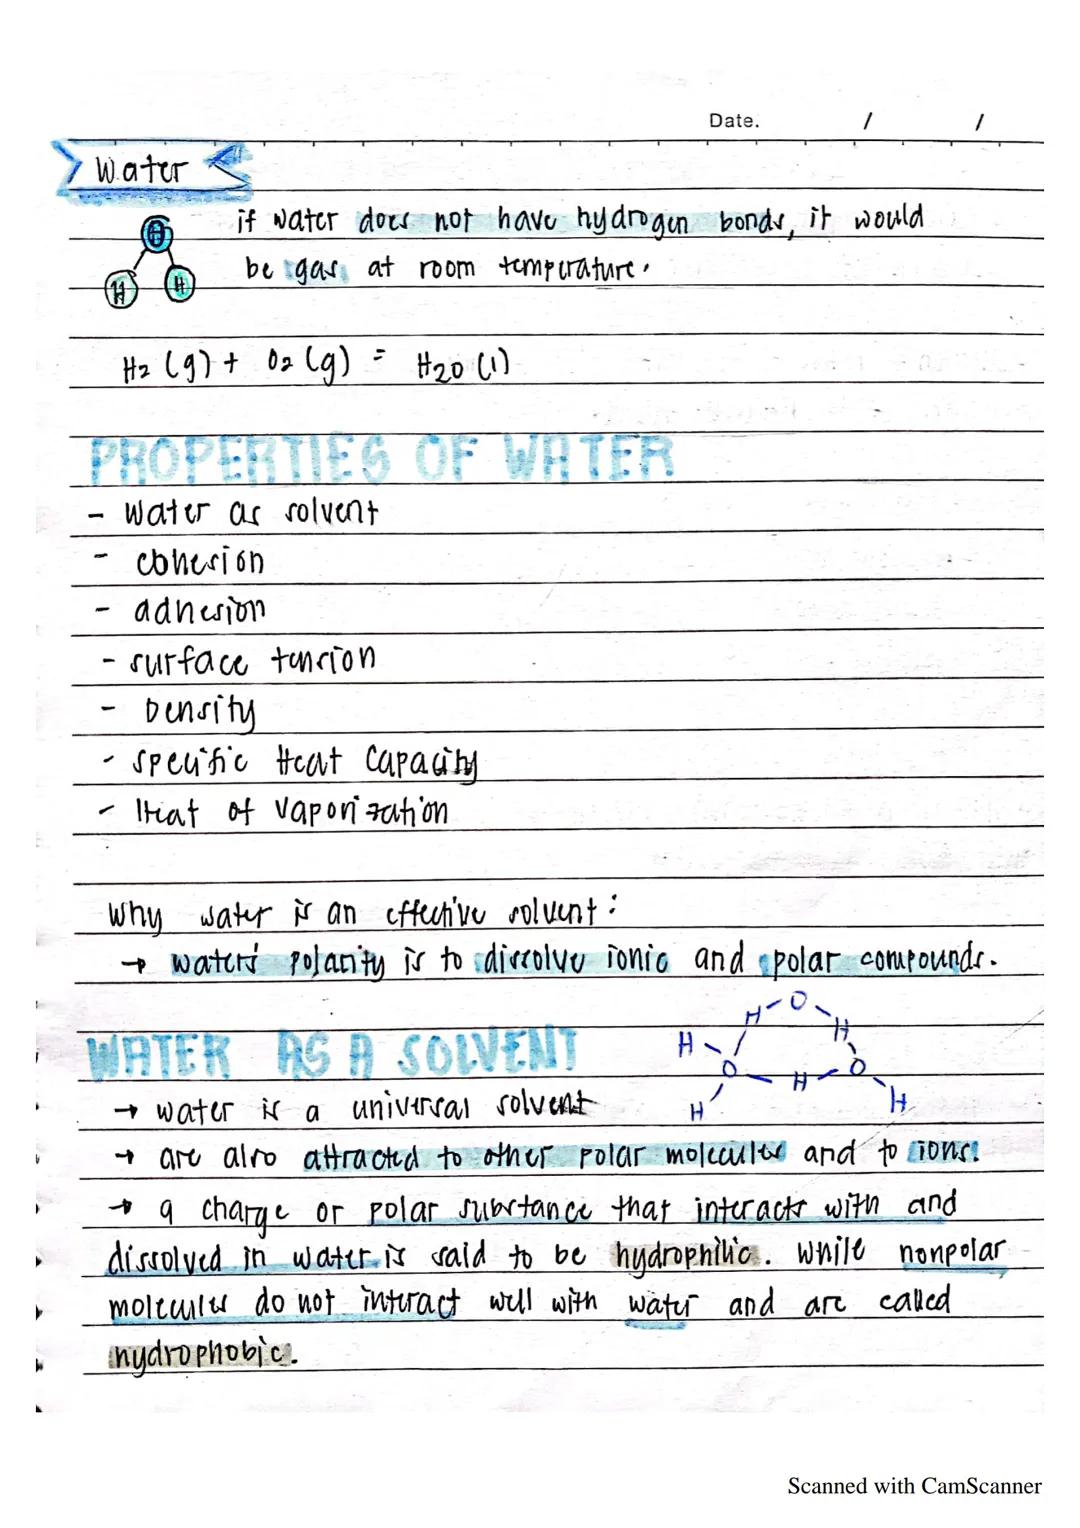 Date. / /
Water
if water does not have hydrogen bonds, it would
be gas at room temperature.
O
H H
H2 (g) + O2 (g) = H2O (l)
PROPERTIES OF WATER
- Water as solvent
- cohesion
- adhesion
- surface tension
- Density
- Specific Heat Capacity
- Heat of Vaporization
Why water is an effective solvent:
→ water's polarity is to dissolve ionic and polar compounds.
H - O - H
H - O - H - O - H
H
WATER AS A SOLVENT
→ water is a universal solvent
→ are also attracted to other polar molecules and to ions.
→ a charge or polar substance that interacts with and
dissolved in water is said to be hydrophilic. While nonpolar
molecules do not interact well with water and are called
hydrophobic.
Scanned with CamScanner